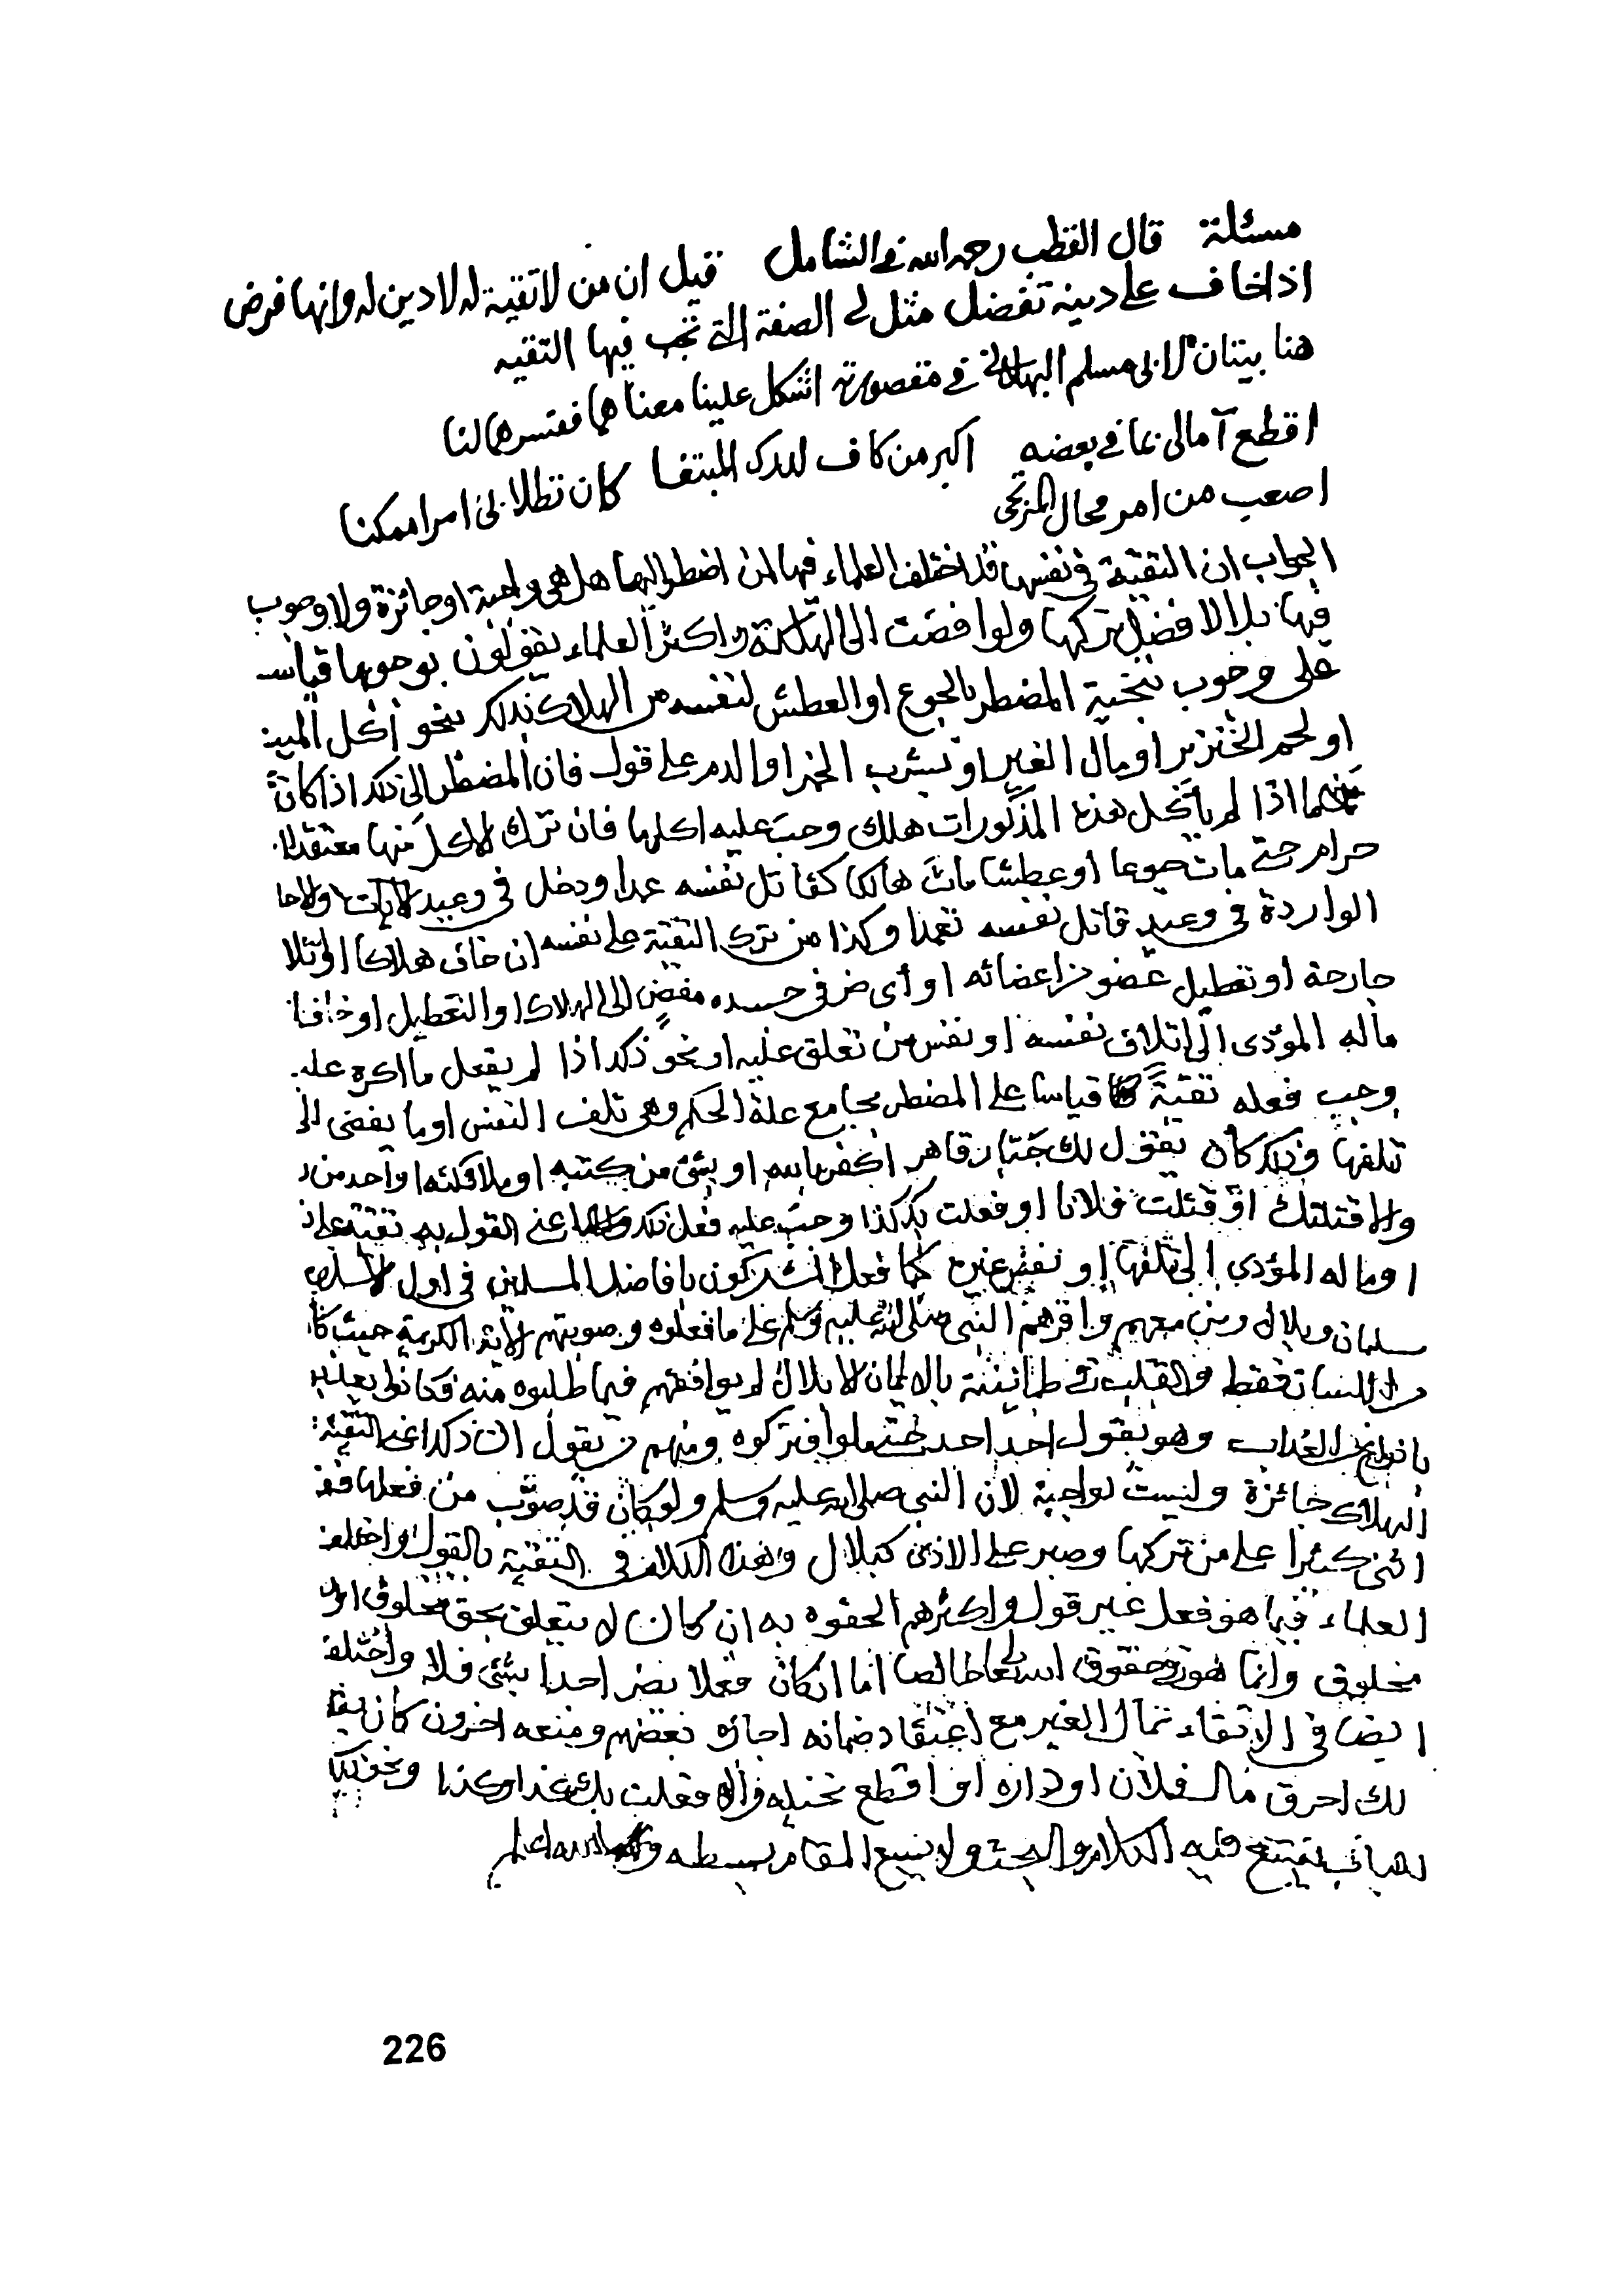 مسئلة قال القطب رحمه الله في الشامل قيل ان من لا تقية له لا دين له وانها فرض
اذا خاف على دينه تفضل مثل لي الصفة التي تجب فيها التقيه
هنا بيتان لابي مسلم البهلاني في مقصورته اشكل علينا معناهما ففسرهما لنا
اقطع آمالي بما في بعضه اكبر من كاف لدرك المبتغا كان تطلابي امرا ممكنا
اصعب من امر محال المرتجى
الجواب ان التقية في نفسها قد اختلف العلماء فيها لمن اضطر اليها هل هي واجبة او جائزة ولا وجوب
فيها بل الافضل تركها ولو افضت الى الهلكة واكثر العلماء يقولون بوجوبها قياسا
على وجوب تنجية المضطر بالجوع او العطش لنفسه من الهلاك بذلك بنحو أكل الميتة
او لحم الخنزير او مال الغير او بشرب الخمر او الدم على قول فان المضطر الى ذلك اذا كان
اذا لم يأكل هذه المذكورات هلك وجب عليه اكلها فان ترك الاكل منها معتقدا
حرام حتى مات جوعا او عطشا مات هالكا كقاتل نفسه عمدا ودخل في وعيد الآيات والاحا
الواردة في وعيد قاتل نفسه تعمدا وكذا من ترك التقية على نفسه ان خاف هلاكا او اتلا
جارحة او تعطيل عضو من اعضائه او أي ضر في جسده مفضٍ الى الهلاك او التعطيل او خاف
ماله المؤدى الى اتلاف نفسه او نفس من تعلق عليه او نحو ذلك اذا لم يفعل ما اكره عليه
وجب فعله تقيةً قياسا على المضطر بجامع علة الحكم وهي تلف النفس او ما يفضى الى
تلفها وذلك كأن يقول لك جبّار قاهر اكفر بالله او بشئ من كتبه او ملائكته او أحد من ر
والا قتلتك او قتلت فلانا او فعلت بك كذا وجب عليه فعل ذلك القول به تقية على
او ماله المؤدي الى تلفها او نفس غيره كما فعل المشركون بافاضل المسلمين في اول الاسلام
سلمان وبلال ومن معهم واقرهم النبي صلى الله عليه وسلم على ما فعلوه وصوبتهم الآية الكريمة حيث كا
باللسان فقط والقلب في طمأنينة بالايمان الا بلال لم يوافقهم فيما طلبوه منه فكانوا يعذبو
بانواع العذاب وهو يقول احد احد حتى ملوا فتركوه ومنهم من يقول ان ذلك اعني التقية
الهلاك جائزة وليست بواجبة لان النبي صلى الله عليه وسلم ولو كان قد صوّب من فعلها فقد
اثنى كثيرا على من تركها وصبر على الاذى كبلال وهذا الكلام في التقية بالقول واختلف
العلماء فيما هو فعل غير قول واكثرهم الحقوه به ان كان لا يتعلق بحق مخلوق او
مخلوق وانما هو من حقوق الله تعالى خالصا اما ان كان فعلا يضر احدا بشئ فلا واختلف
ايضا في الاتقاء بمال الغير مع اعتقاد ضمانه اجازه بعضهم ومنعه اخرون كان يقا
لك احرق مال فلان او داره او اقطع نخيله والا فعلت بك كذا وكذا
فيه الكلام والبحث ولا يسع المقام بسطه والله اعلم
226